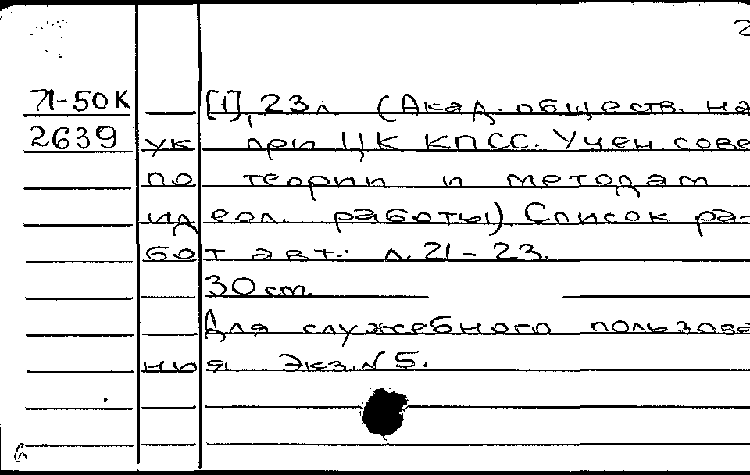 2
71-50К [1], 23л. (Акад. обществ. на
2639 ук при ЦК КПСС. Учен. сове
по теории и методам
идеол. работы). Список ра-
бот авт.: л. 21-23.
30 cm.
Для служебного пользова
ния Экз. N 5.